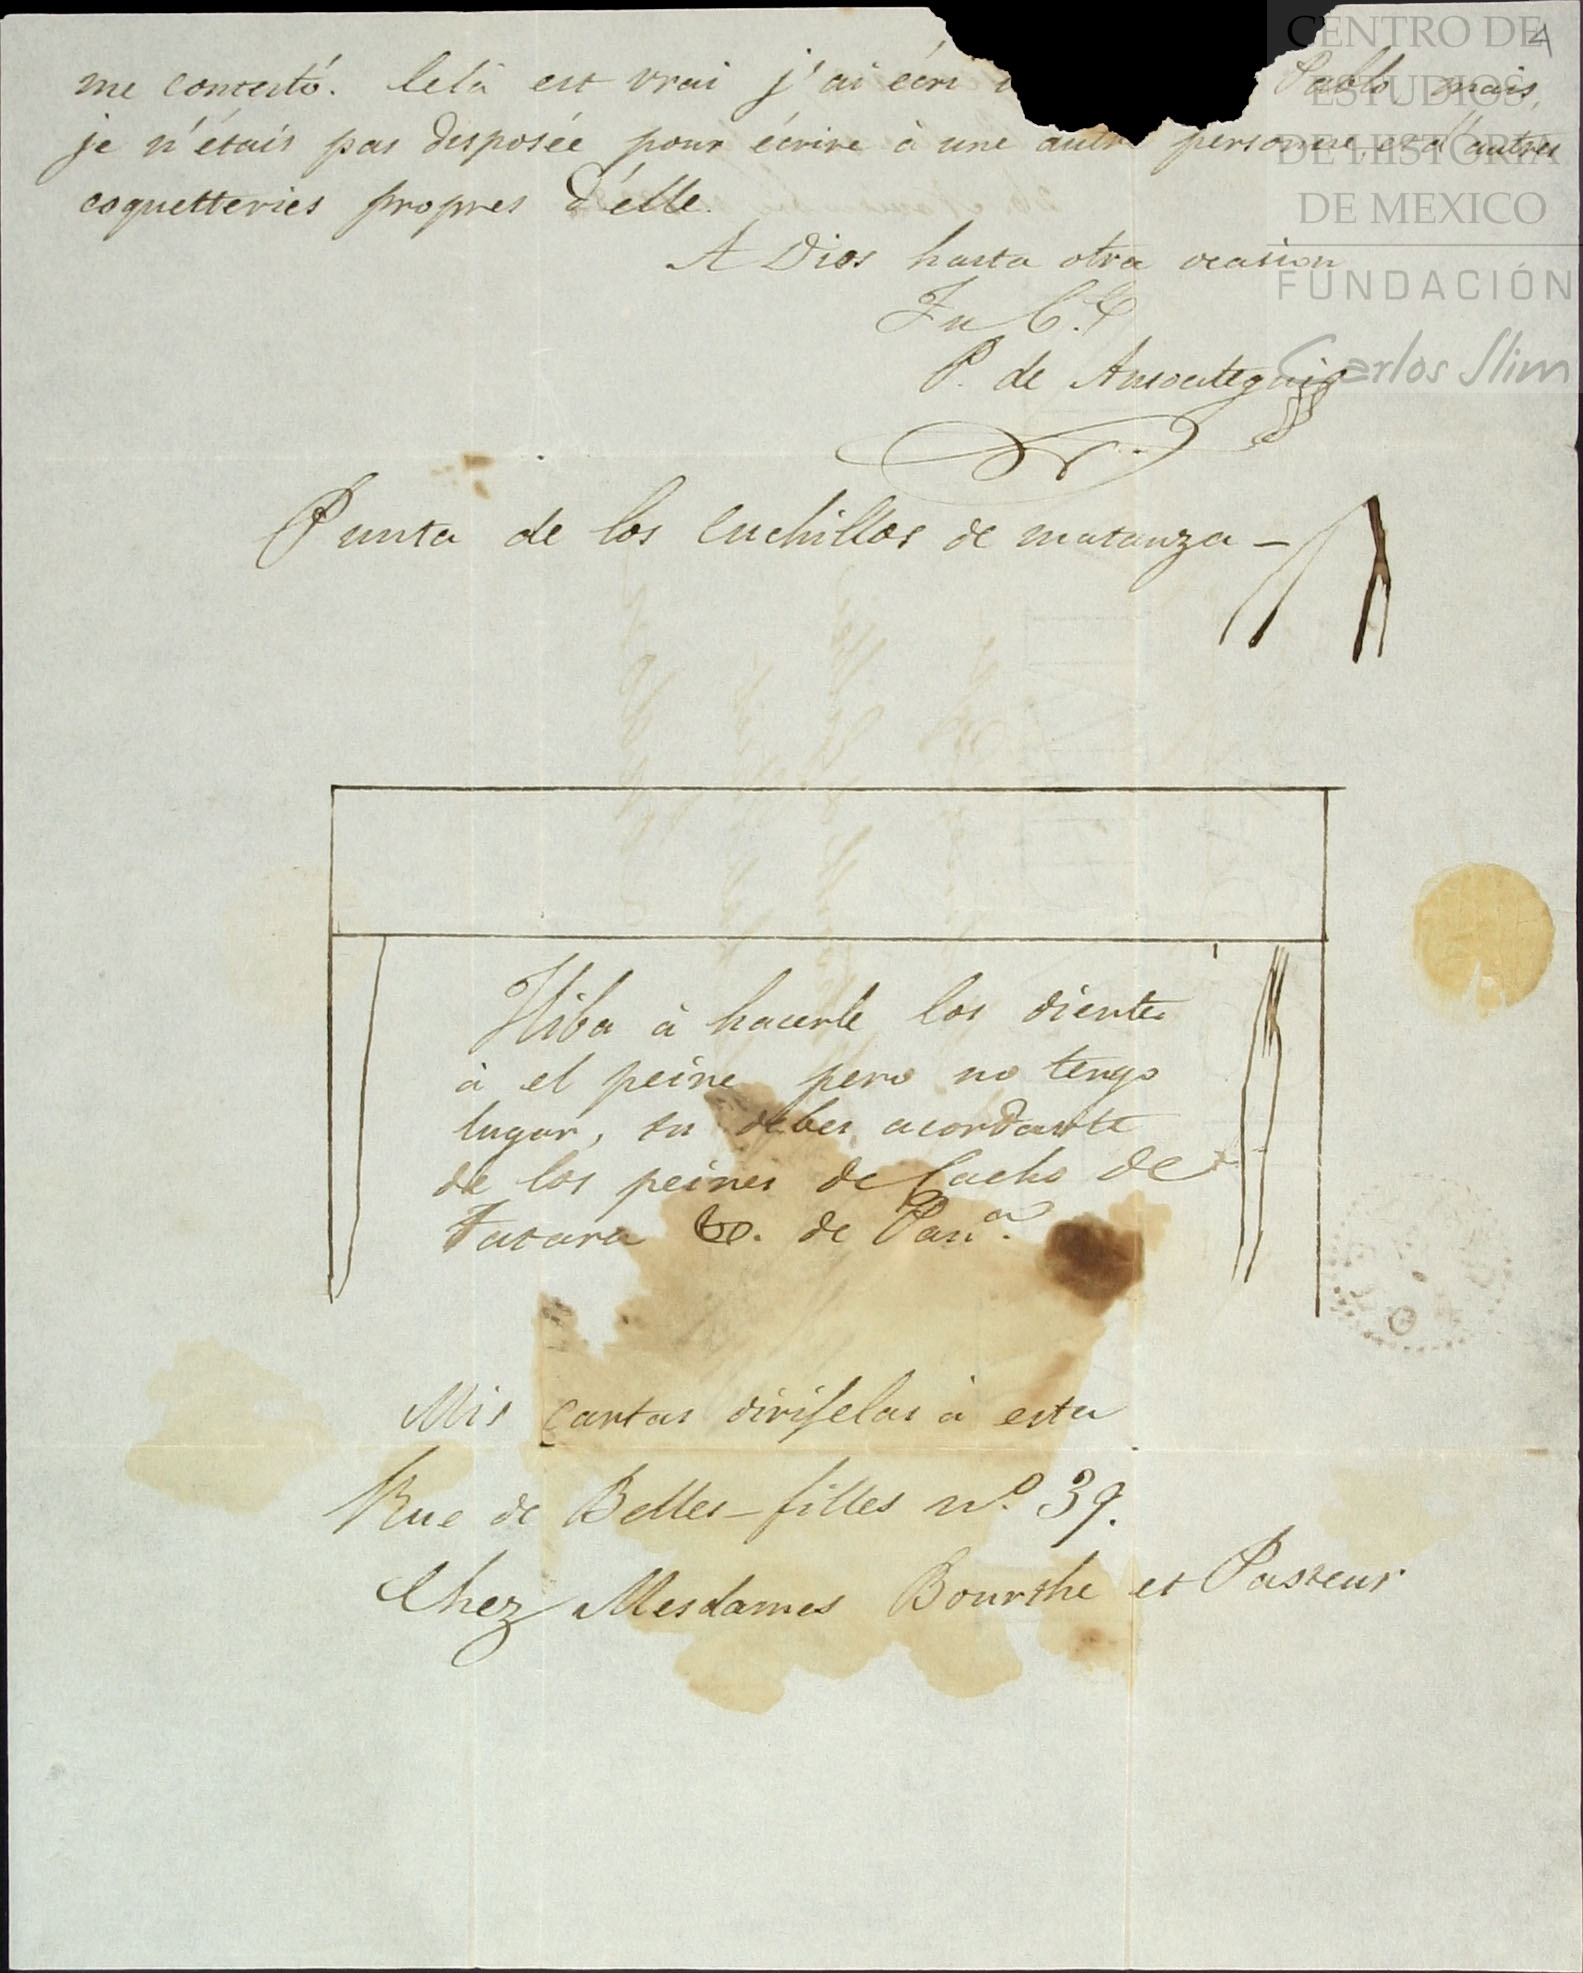 4
me contestó. Celà est vrai j'ai écri Pablo mais,
je n'étais pas disposée pour écrire à une autre personne, et d'autres
coquetteries propres d'elle.
A Dios hasta otra ocasion
Tu
P. de Amoategui
Punta de los Cuchillos de matanza –
Hiba à hacerle los dientes
à el peine pero no tengo
lugar, tu debes acordarte
de los peines de Cacho de
&. de Pan.ª
Mis cartas dirijelas à esta
Rue de Belles-filles nº. 39.
Chez Mesdames Bourthe et Pasteur
CENTRO DE
ESTUDIOS
DE HISTORIA
DE MEXICO
FUNDACIÓN
Carlos Slim